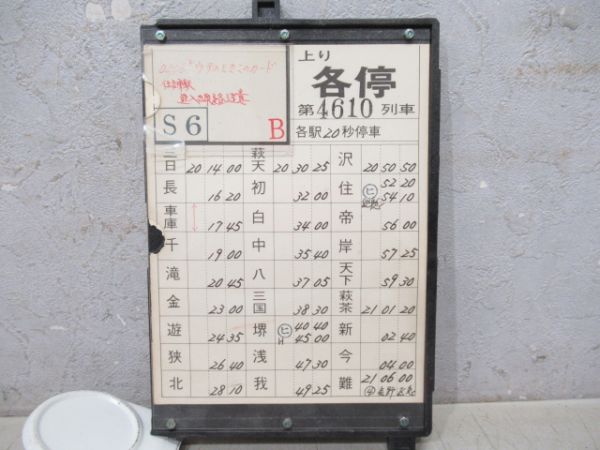 上り
各停
第4610列車
各駅20秒停車
S6
B
三日 20 14 00
長 16 20
車庫 17 45
千 19 00
滝 20 45
金 23 00
遊 24 35
狭 26 40
北 28 10
萩天 20 30 25
初 32 00
白 34 00
中 35 40
八 37 05
三国 38 30
堺 ヒ 40 40
H 45 00
浅 47 30
我 49 25
沢 20 50 50
住 ヒ 52 20
54 10
帝 56 00
岸 57 25
天下 59 30
萩茶 21 01 20
新 02 40
今 04 00
難 21 06 00